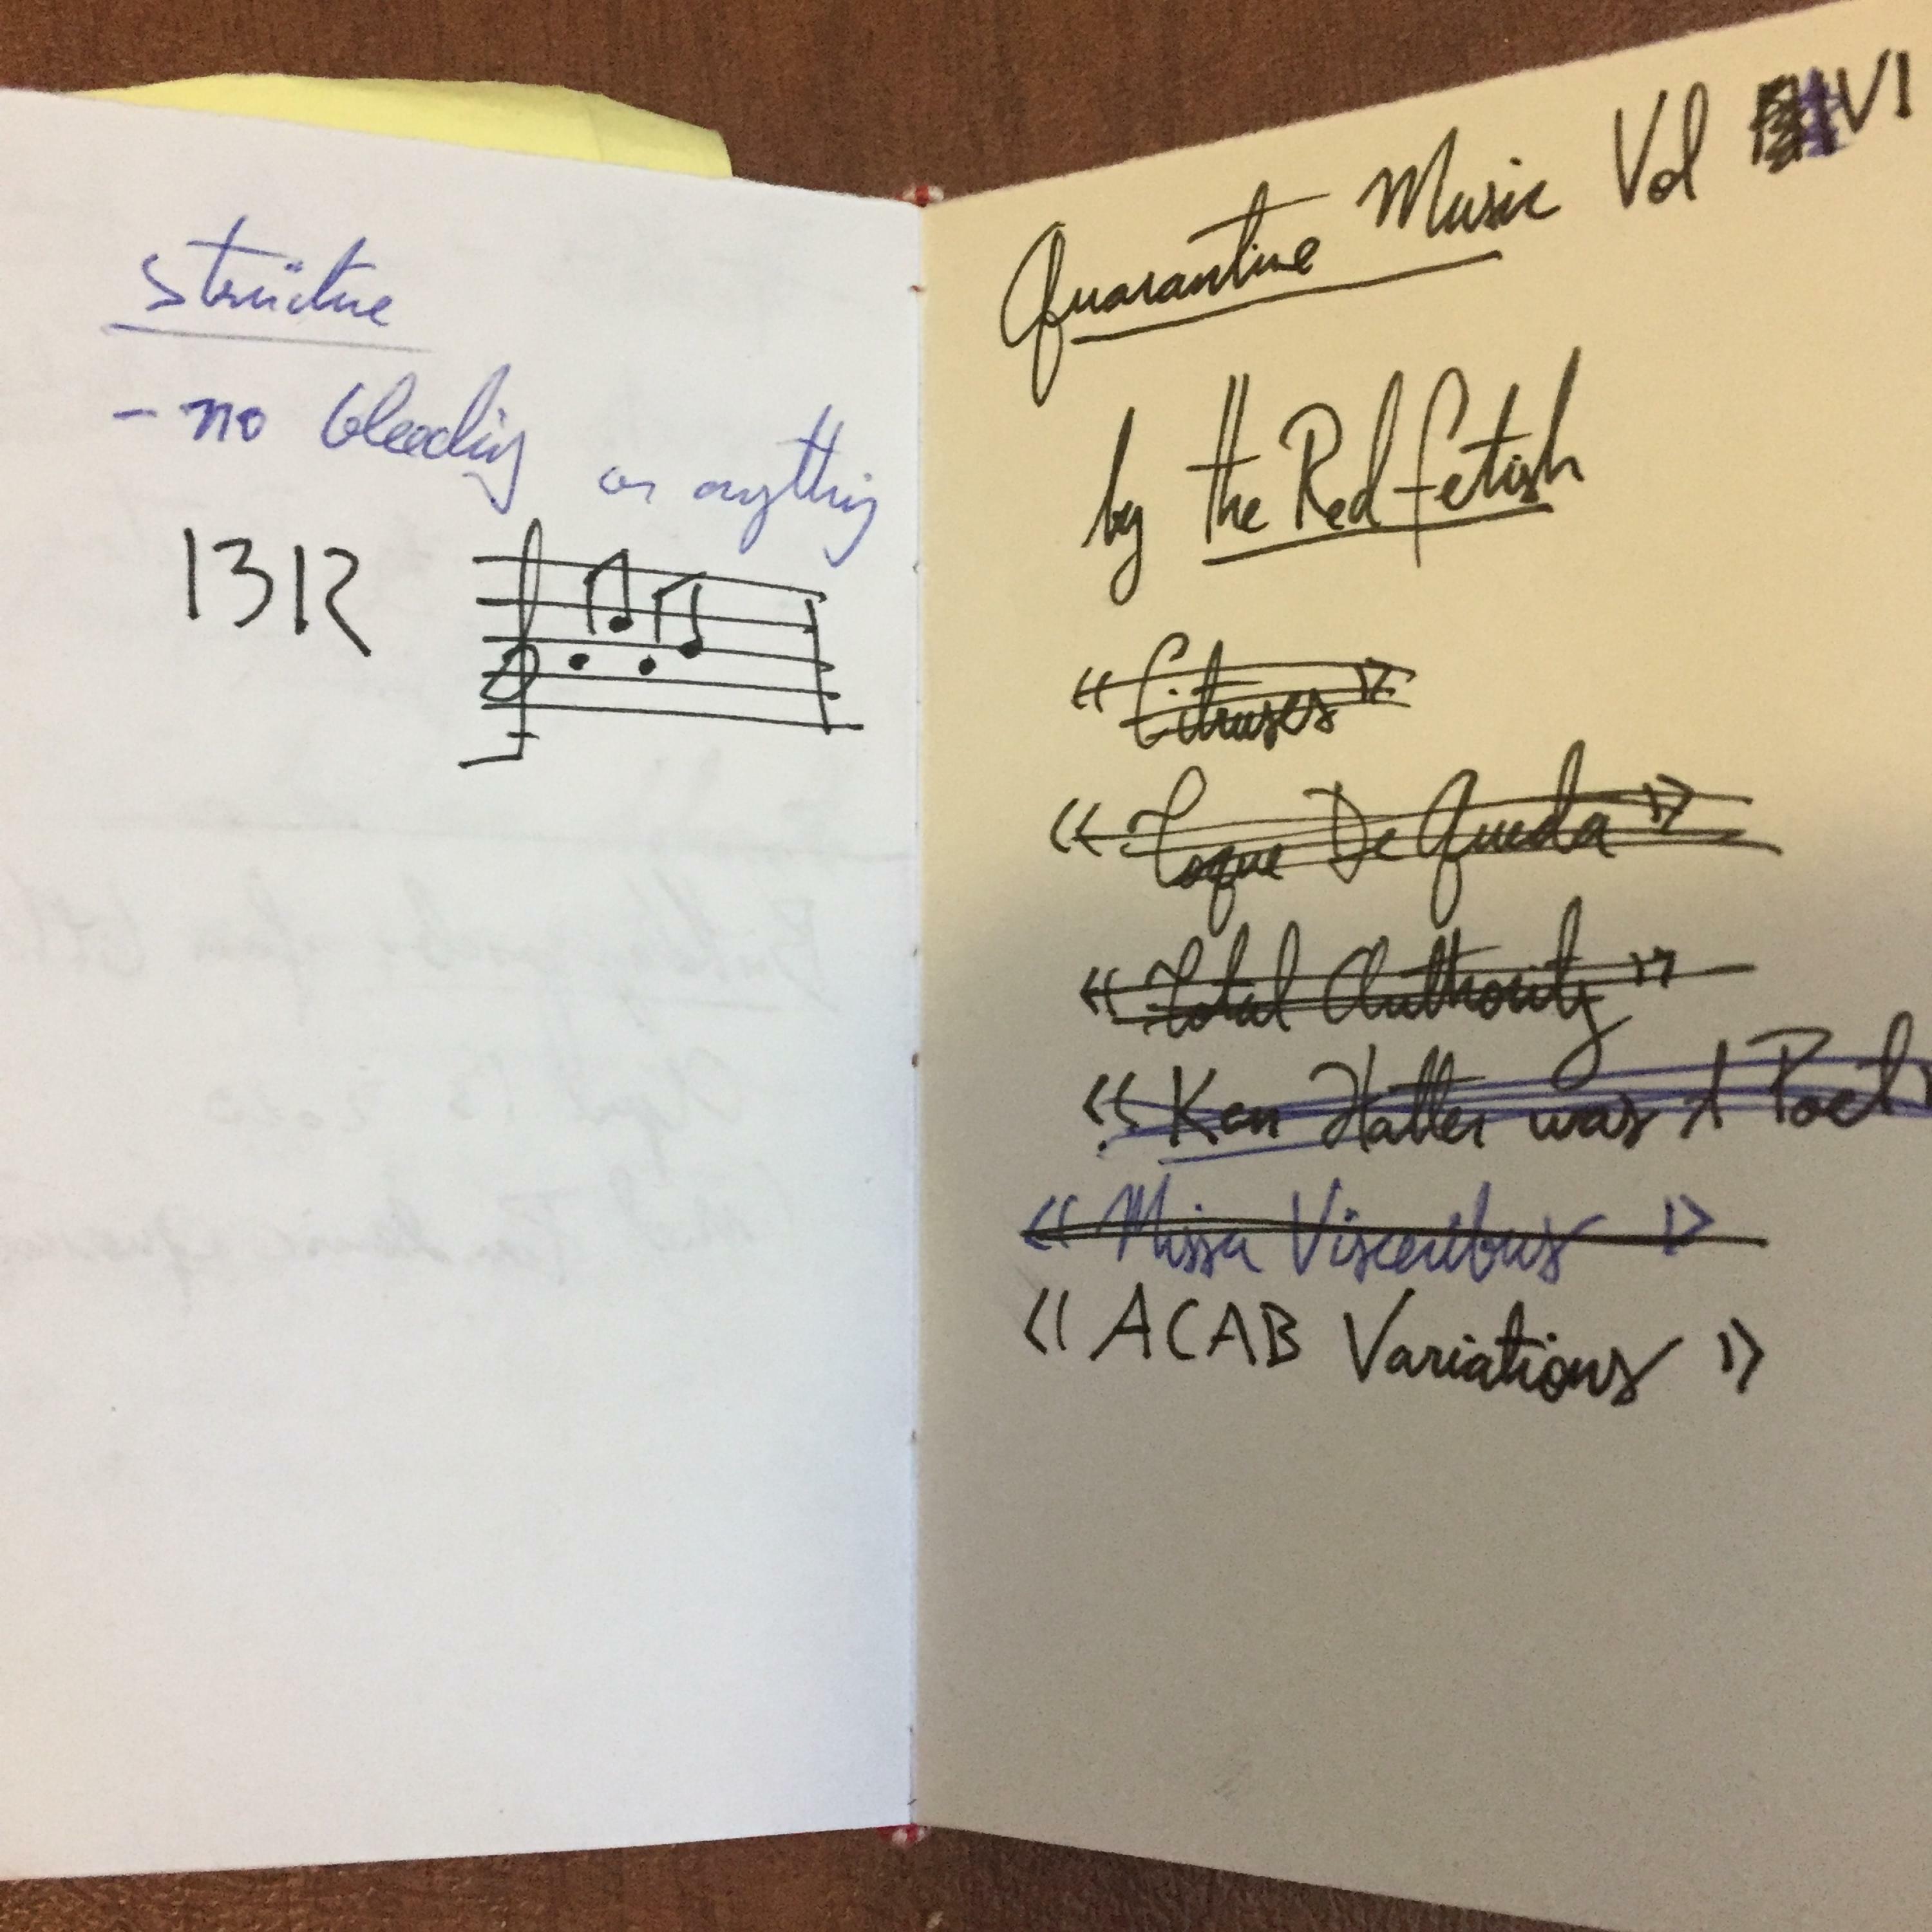 Structure
- no bleeding or anything
1312
Quarantine Music Vol VI
by the Red Fetish
« Citruses »
« Toque De Queda »
« Total Authority »
« Ken Hatter was A Poet
« Missa Visceribus »
« ACAB Variations »